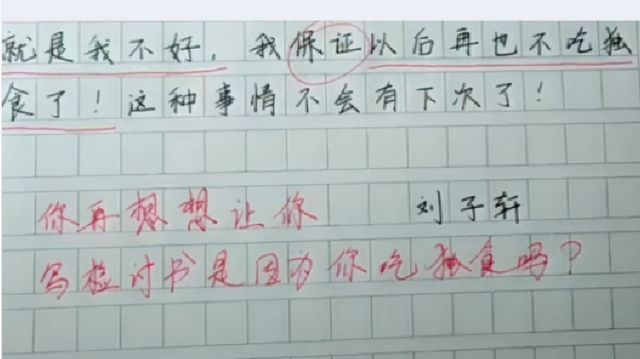 就是我不好，我保证以后再也不吃独
食了！这种事情不会有下次了！
刘子轩
你再想想让你
写检讨书是因为你吃独食吗？